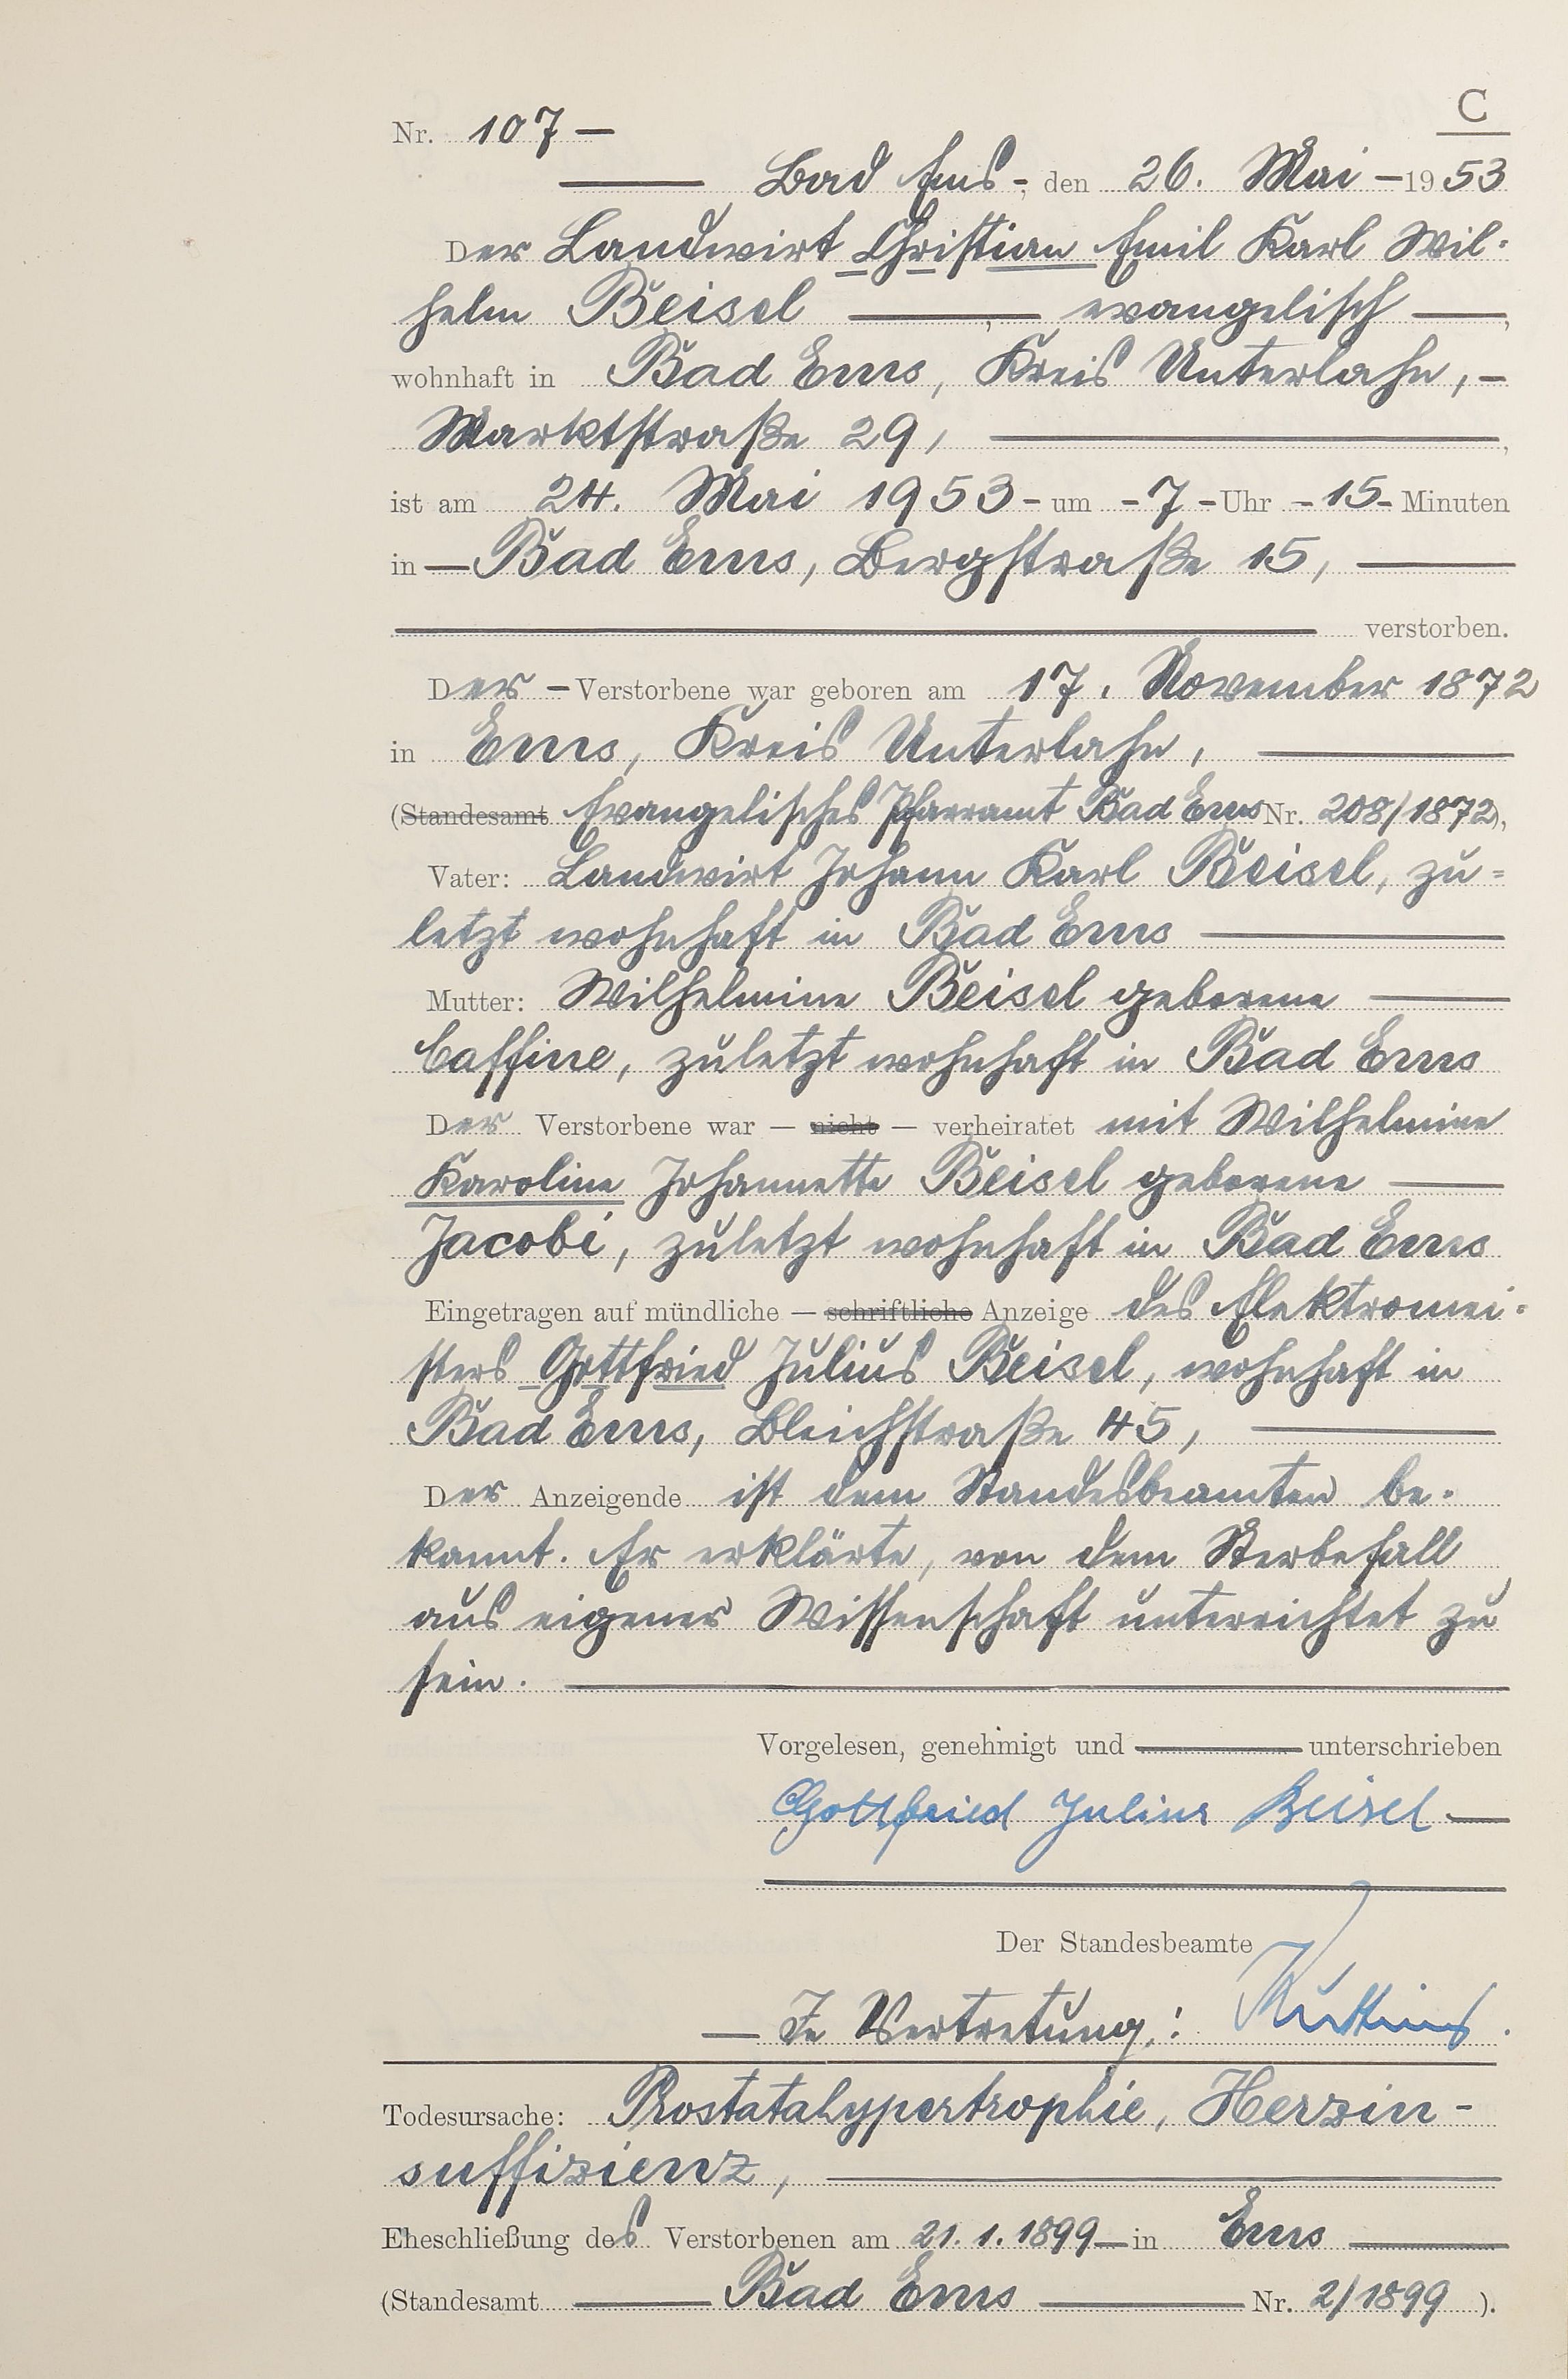 C
Nr. 107 —
Bad Ems -, den 26. Mai — 1953
Der Landwirt Christian Emil Karl Wil-
helm Beisel ——, evangelisch ——,
wohnhaft in Bad Ems, Kreis Unterlahn, —
Marktstraße 29, ——,
ist am 24. Mai 1953 - um - 7 - Uhr - 15 - Minuten
in — Bad Ems, Bergstraße 15, ——
—— verstorben.
Der — Verstorbene war geboren am 17. November 1872
in Ems, Kreis Unterlahn, ——
(Standesamt Evangelisches Pfarramt Bad Ems Nr. 208/1872),
Vater: Landwirt Johann Karl Beisel, zu=
letzt wohnhaft in Bad Ems ——
Mutter: Wilhelmine Beisel geborene ——
Caffine, zuletzt wohnhaft in Bad Ems
Der Verstorbene war — nicht — verheiratet mit Wilhelmine
Karoline Johannette Beisel geborene ——
Jacobi, zuletzt wohnhaft in Bad Ems
Eingetragen auf mündliche — schriftliche Anzeige des Elektromei-
sters Gottfried Julius Beisel, wohnhaft in
Bad Ems, Bleichstraße 45, ——
Der Anzeigende ist dem Standesbeamten be-
kannt. Er erklärte, von dem Sterbefall
aus eigener Wissenschaft unterrichtet zu
sein. ——
Vorgelesen, genehmigt und —— unterschrieben
Gottfried Julius Beisel —
Der Standesbeamte
— In Vertretung:
Todesursache: Prostatahypertrophie, Herzin-
suffizienz, ——
Eheschließung des Verstorbenen am 21. 1. 1899 — in Ems ——
(Standesamt —— Bad Ems —— Nr. 2/1899 ).